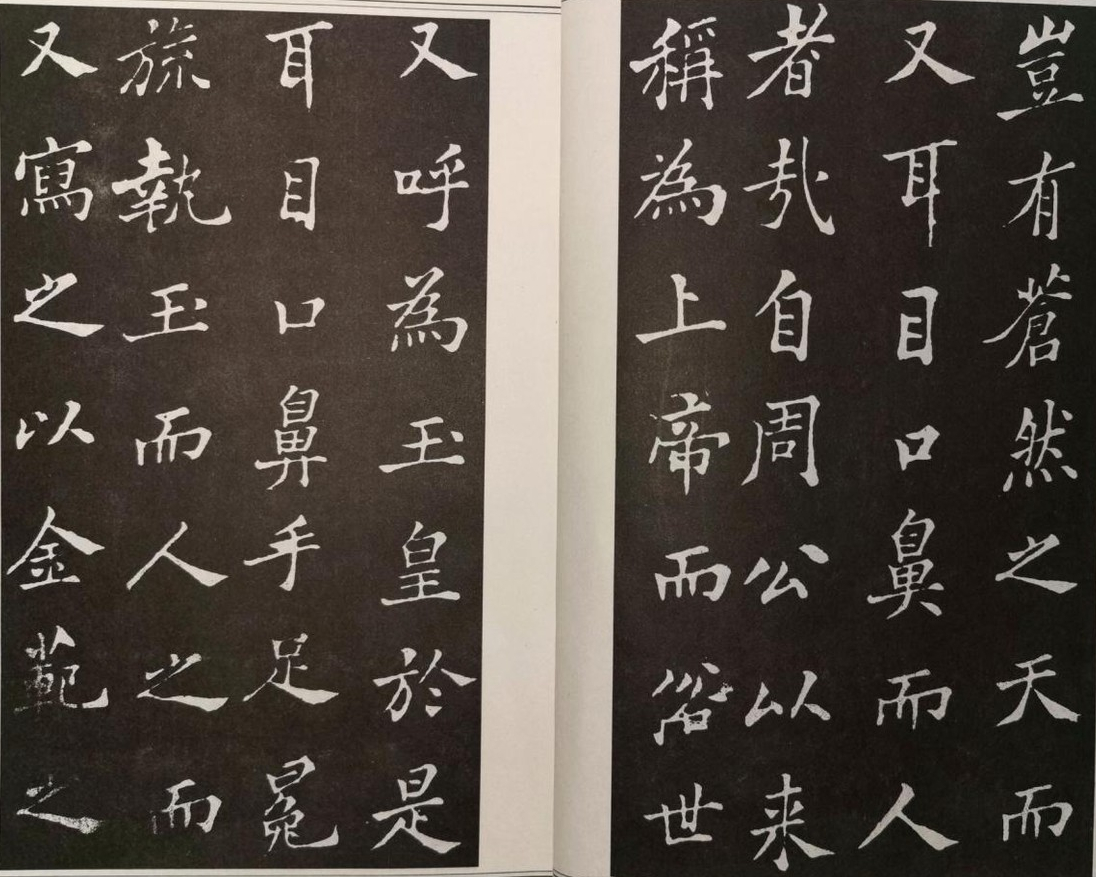 豈有蒼然之天而
又耳目口鼻而人
者哉自周公以来
稱為上帝而俗世
又呼為玉皇於是
耳目口鼻手足冕
旒執玉而人之而
又寫之以金範之